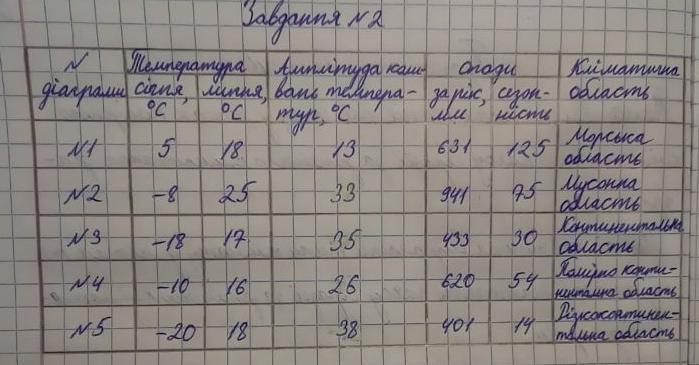 Завдання №2
№ діаграми | Температура січня, °С | липня, °С | Амплітуда коливань температур, °С | Опади за рік, мм | сезонність | Кліматична область
№1 5 18 13 631 125 Морська область
№2 -8 25 33 941 75 Мусонна область
№3 -18 17 35 433 30 Континентальна область
№4 -10 16 26 620 54 Помірно континентальна область
№5 -20 18 38 401 14 Різкоконтинентальна область